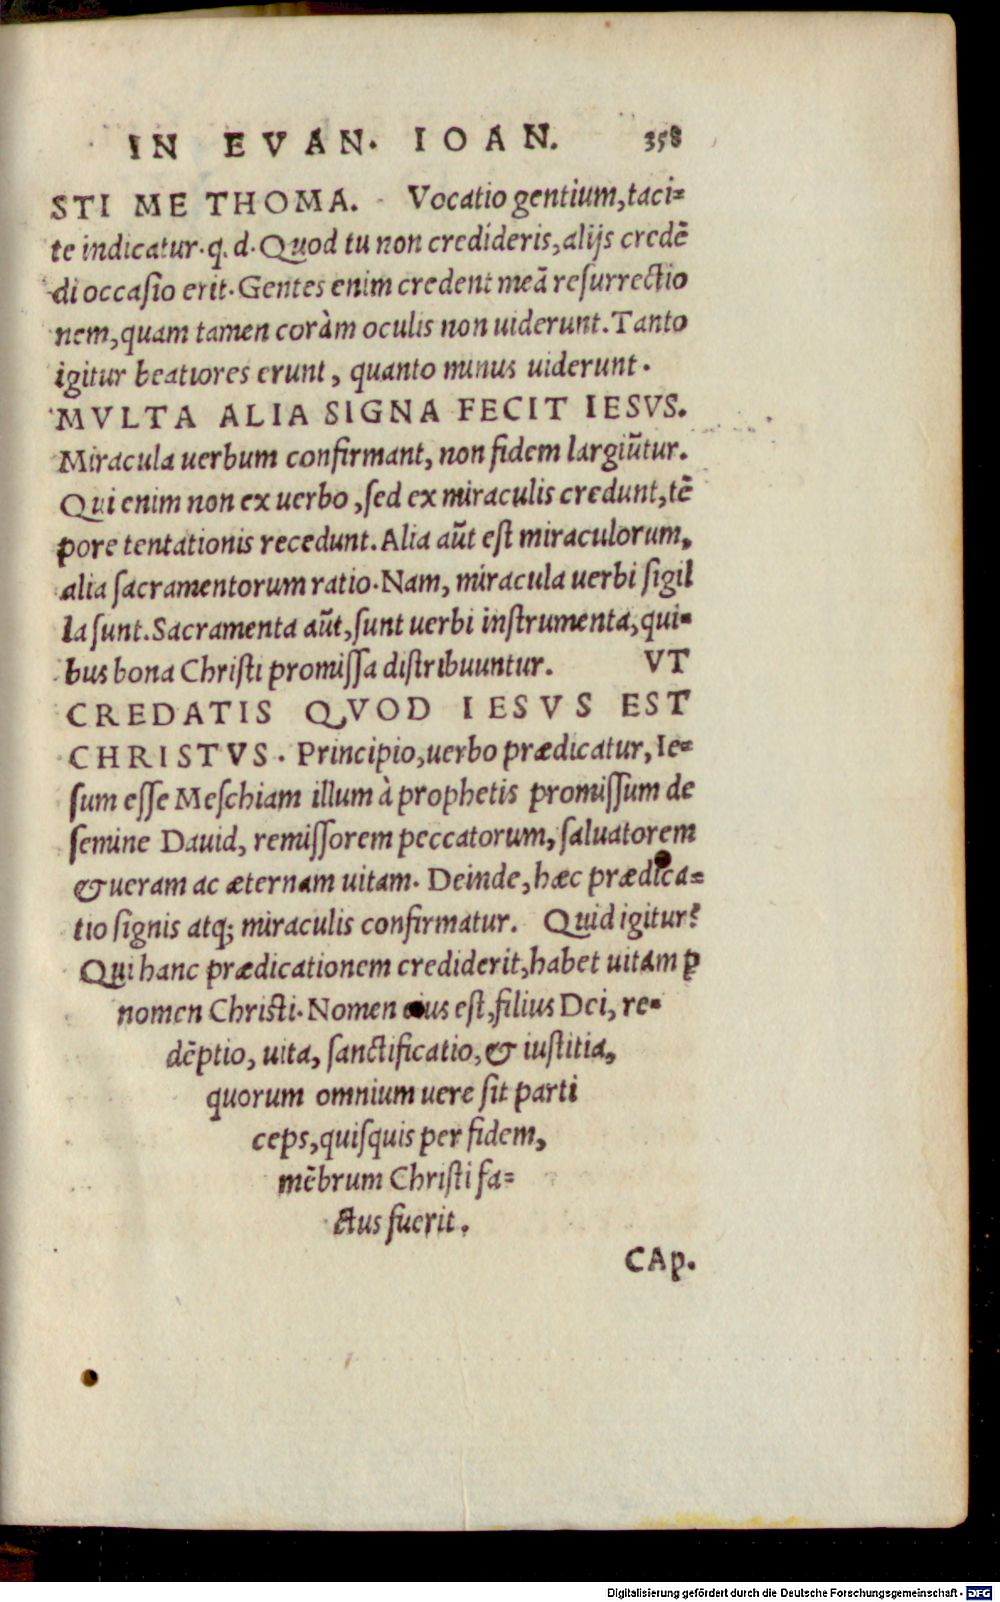 IN EVAN. IOAN. 358
STI ME THOMA. Vocatio gentium, taci=
te indicatur. q. d. Quod tu non credideris, alijs credē
di occaſio erit. Gentes enim credent meā reſurrectio
nem, quam tamen coràm oculis non uiderunt. Tanto
igitur beatiores erunt, quanto minus uiderunt.
MVLTA ALIA SIGNA FECIT IESVS.
Miracula uerbum confirmant, non fidem largiūtur.
Qui enim non ex uerbo, ſed ex miraculis credunt, tē
pore tentationis recedunt. Alia aūt eſt miraculorum,
alia ſacramentorum ratio. Nam, miracula uerbi ſigil
la ſunt. Sacramenta aūt, ſunt uerbi inſtrumenta, qui=
bus bona Chriſti promiſſa diſtribuuntur. VT
CREDATIS QVOD IESVS EST
CHRISTVS. Principio, uerbo prædicatur, Ie=
ſum eſſe Meſchiam illum à prophetis promiſſum de
ſemine Dauid, remiſſorem peccatorum, ſaluatorem
& ueram ac æternam uitam. Deinde, hæc prædica=
tio ſignis atq; miraculis confirmatur. Quid igitur?
Qui hanc prædicationem crediderit, habet uitam ꝑ
nomen Chriſti. Nomen eius eſt, filius Dei, re=
dēptio, uita, ſanctificatio, & iuſtitia,
quorum omnium uere ſit parti
ceps, quiſquis per fidem,
mēbrum Chriſti fa=
ctus fuerit.
CAp.
Digitalisierung gefördert durch die Deutsche Forschungsgemeinschaft - DFG